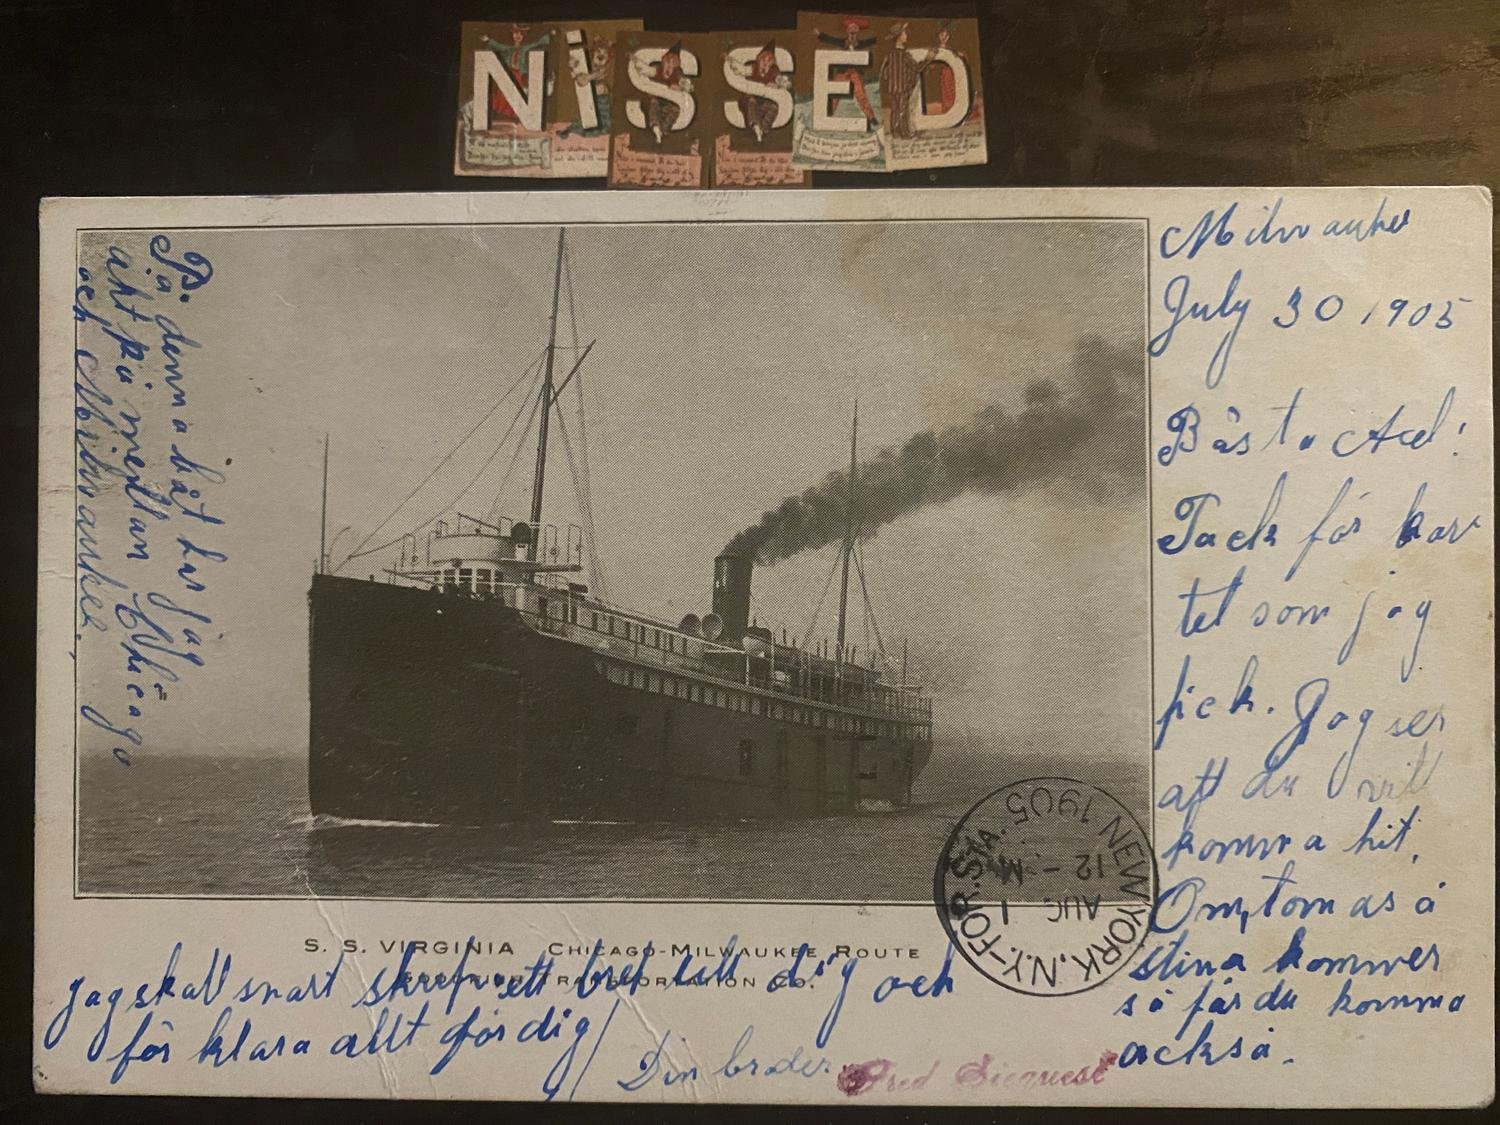 NiSSED
Milwaukee
July 30 1905
Bästa Axel!
Tack för kor
tet som jag
fick. Jag ser
att du vill
komma hit.
Om tomas å
stina kommer
så får du komma
åckså.
jag skall snart skrifva ett bref till dig och
för klara allt för dig
Din broder Fred Siequest
PS.
På denna båt har jag
åkt på mellan Chicago
och Milwaukee.
S. S. VIRGINIA CHICAGO-MILWAUKEE ROUTE
TRANSPORTATION CO.
NEW YORK, N.Y.-FOR. STA.
AUG 1
12-M
1905